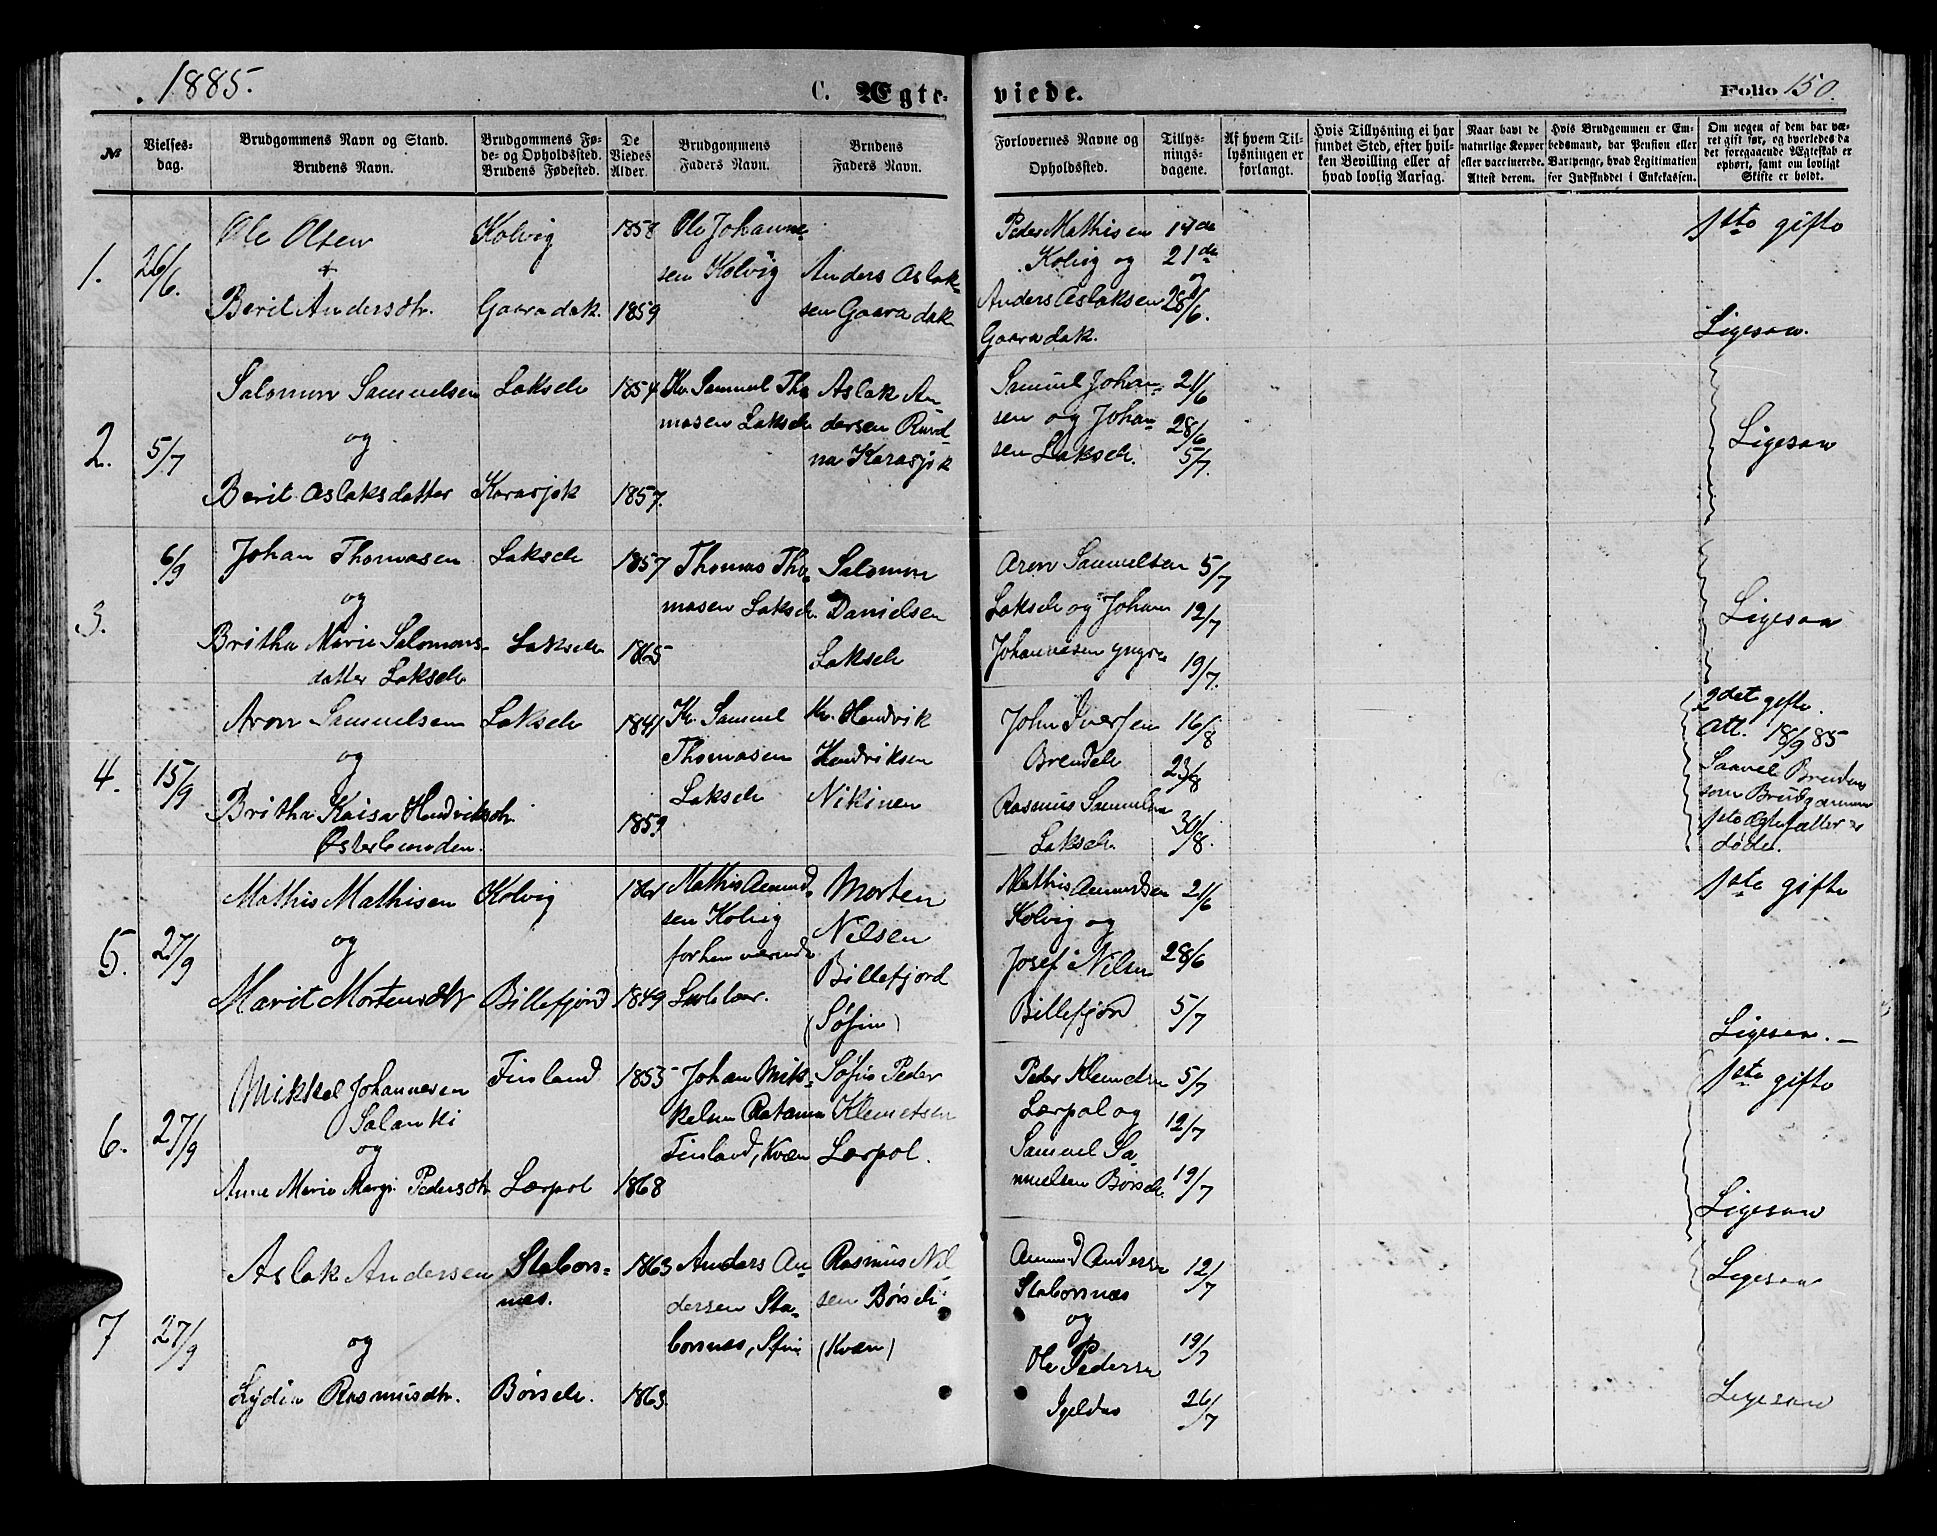 1885.
C. Ægte-
viede.
Folio 150.
№
Vielses-
dag.
Brudgommens Navn og Stand.
Brudens Navn.
Brudgommens Fø-
de- og Opholdssted.
Brudens Fødested.
De
Viedes
Alder.
Brudgommens
Faders Navn.
Brudens
Faders Navn.
Forlovernes Navne og
Opholdssted.
Tillys-
nings-
dagene.
Af hvem Til-
lysningen er
forlangt.
Hvis Tillysning ei har
fundet Sted, efter hvil-
ken Bevilling eller af
hvad lovlig Aarsag.
Naar havt de
naturlige Kopper
eller vaccinerede.
Attest derom.
Hvis Brudgommen er Em-
bedsmand, har Pension eller
Vartpenge, hvad Legitimation
for Indskuddet i Enkekassen.
Om nogen af dem har væ-
ret gift før, og hvorledes da
det foregaaende Ægteskab er
ophørt, samt om lovligt
Skifte er holdt.
1.
26/6.
Ole Olsen
+
Berit Andersdtr.
Kolvig
Gaaradak.
1858
1859
Ole Johanne-
sen Kolvig
Anders Aslak-
sen Gaaradak
Peder Mathisen
Kolvig og
Anders Aslaksen
Gaaradak.
14de
21de
og
28/6.
1ste gifte
Ligesaa.
2.
5/7
Salomon Samuelsen
og
Berit Aslaksdatter
Lakselv
Karasjok
1854
1857.
Kv. Samuel Tho
masen Lakselv
Aslak An-
dersen Rund-
na Karasjok
Samuel Johan-
sen og Johan-
sen Lakselv.
21/6
28/6
5/7.
Ligesaa
3.
6/9
Johan Thomasen
og
Britha Marie Salomons-
datter Lakselv
Lakselv
Lakselv
1857
1865
Thomas Tho-
masen Lakselv
Salomon
Danielsen
Lakselv
Aron Samuelsen
Lakselv og Johan
Johannesen yngre
5/7
12/7
19/7.
Ligesaa
4.
15/9
Aron Samuelsen
og
Britha Kaisa Hendriksdtr.
Østerbunden.
Lakselv
1841
1859
Kv. Samuel
Thomasen
Lakselv
Kv. Hendrik
Hendriksen
Nikinen
John Iversen
Brendelv
Rasmus Samuelsen
Lakselv
16/8
23/8
30/8.
2det gifte.
Att. 18/9 85
som Brudgommens
1ste Ægtefælle
Død.
5.
27/9
Mathis Mathisen
og
Marit Mortensdtr
Kolvig
Billefjord
1861
1849
Mathis Amund-
sen Kolvig
forhenværende
Morten
Nilsen
Billefjord
(Søfin)
Mathis Amundsen
Kolvig og
Josef Nilsen
Billefjord
21/6
28/6
5/7
1ste gifte
Ligesaa.
6.
27/9
Mikkel Johannesen
Salanki
og
Anne Marie Margr. Pedersdtr
Finland
Lærpol
1853
1868
Johan Mik-
kelsen
Finland, Kvæn
Søfin Peder
Klemetsen
Lærpol.
Peder Klemetsen
Lærpol og
Samuel Sa-
muelsen Børselv
5/7
12/7
19/7
1ste gifte
Ligesaa
7
27/9
Aslak Andersen
og
Lydia Rasmusdtr.
Stabors-
næs.
Børselv.
1863
1863
Anders An-
dersen Sta-
borsnæs, Sfin
Rasmus Nil-
sen Børselv
(Kvæn)
Amund Andersen
Staborsnæs
og
Ole Pedersen
Igeldas
12/7
19/7
26/7
Ligesaa
Ligesaa